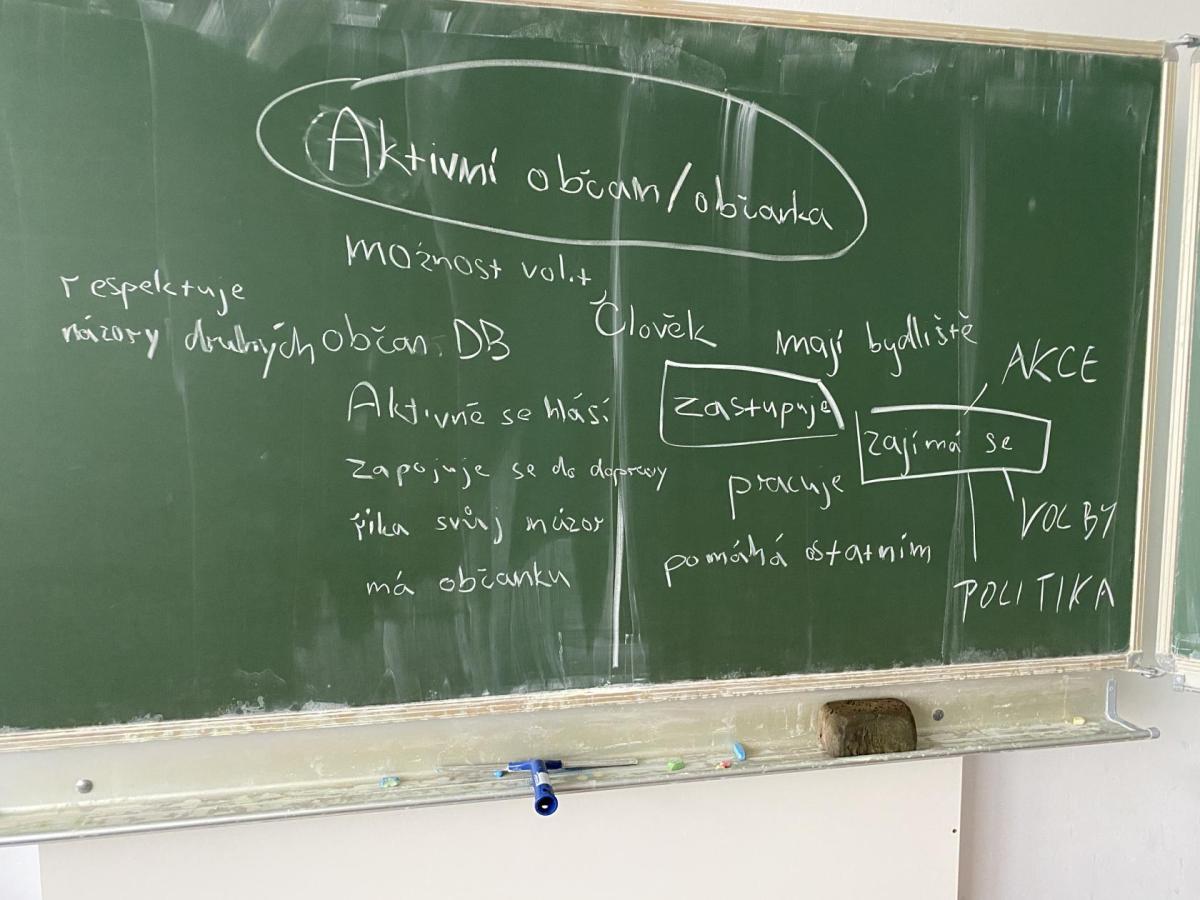 Aktivní občan/občanka
možnost volit
respektuje
názory druhých
občan DB
Aktivně se hlásí
zapojuje se do dopravy
říka svůj názor
má občanku
Člověk
mají bydliště
zastupuje
zajímá se
AKCE
VOLBY
POLITIKA
pracuje
pomáhá ostatním